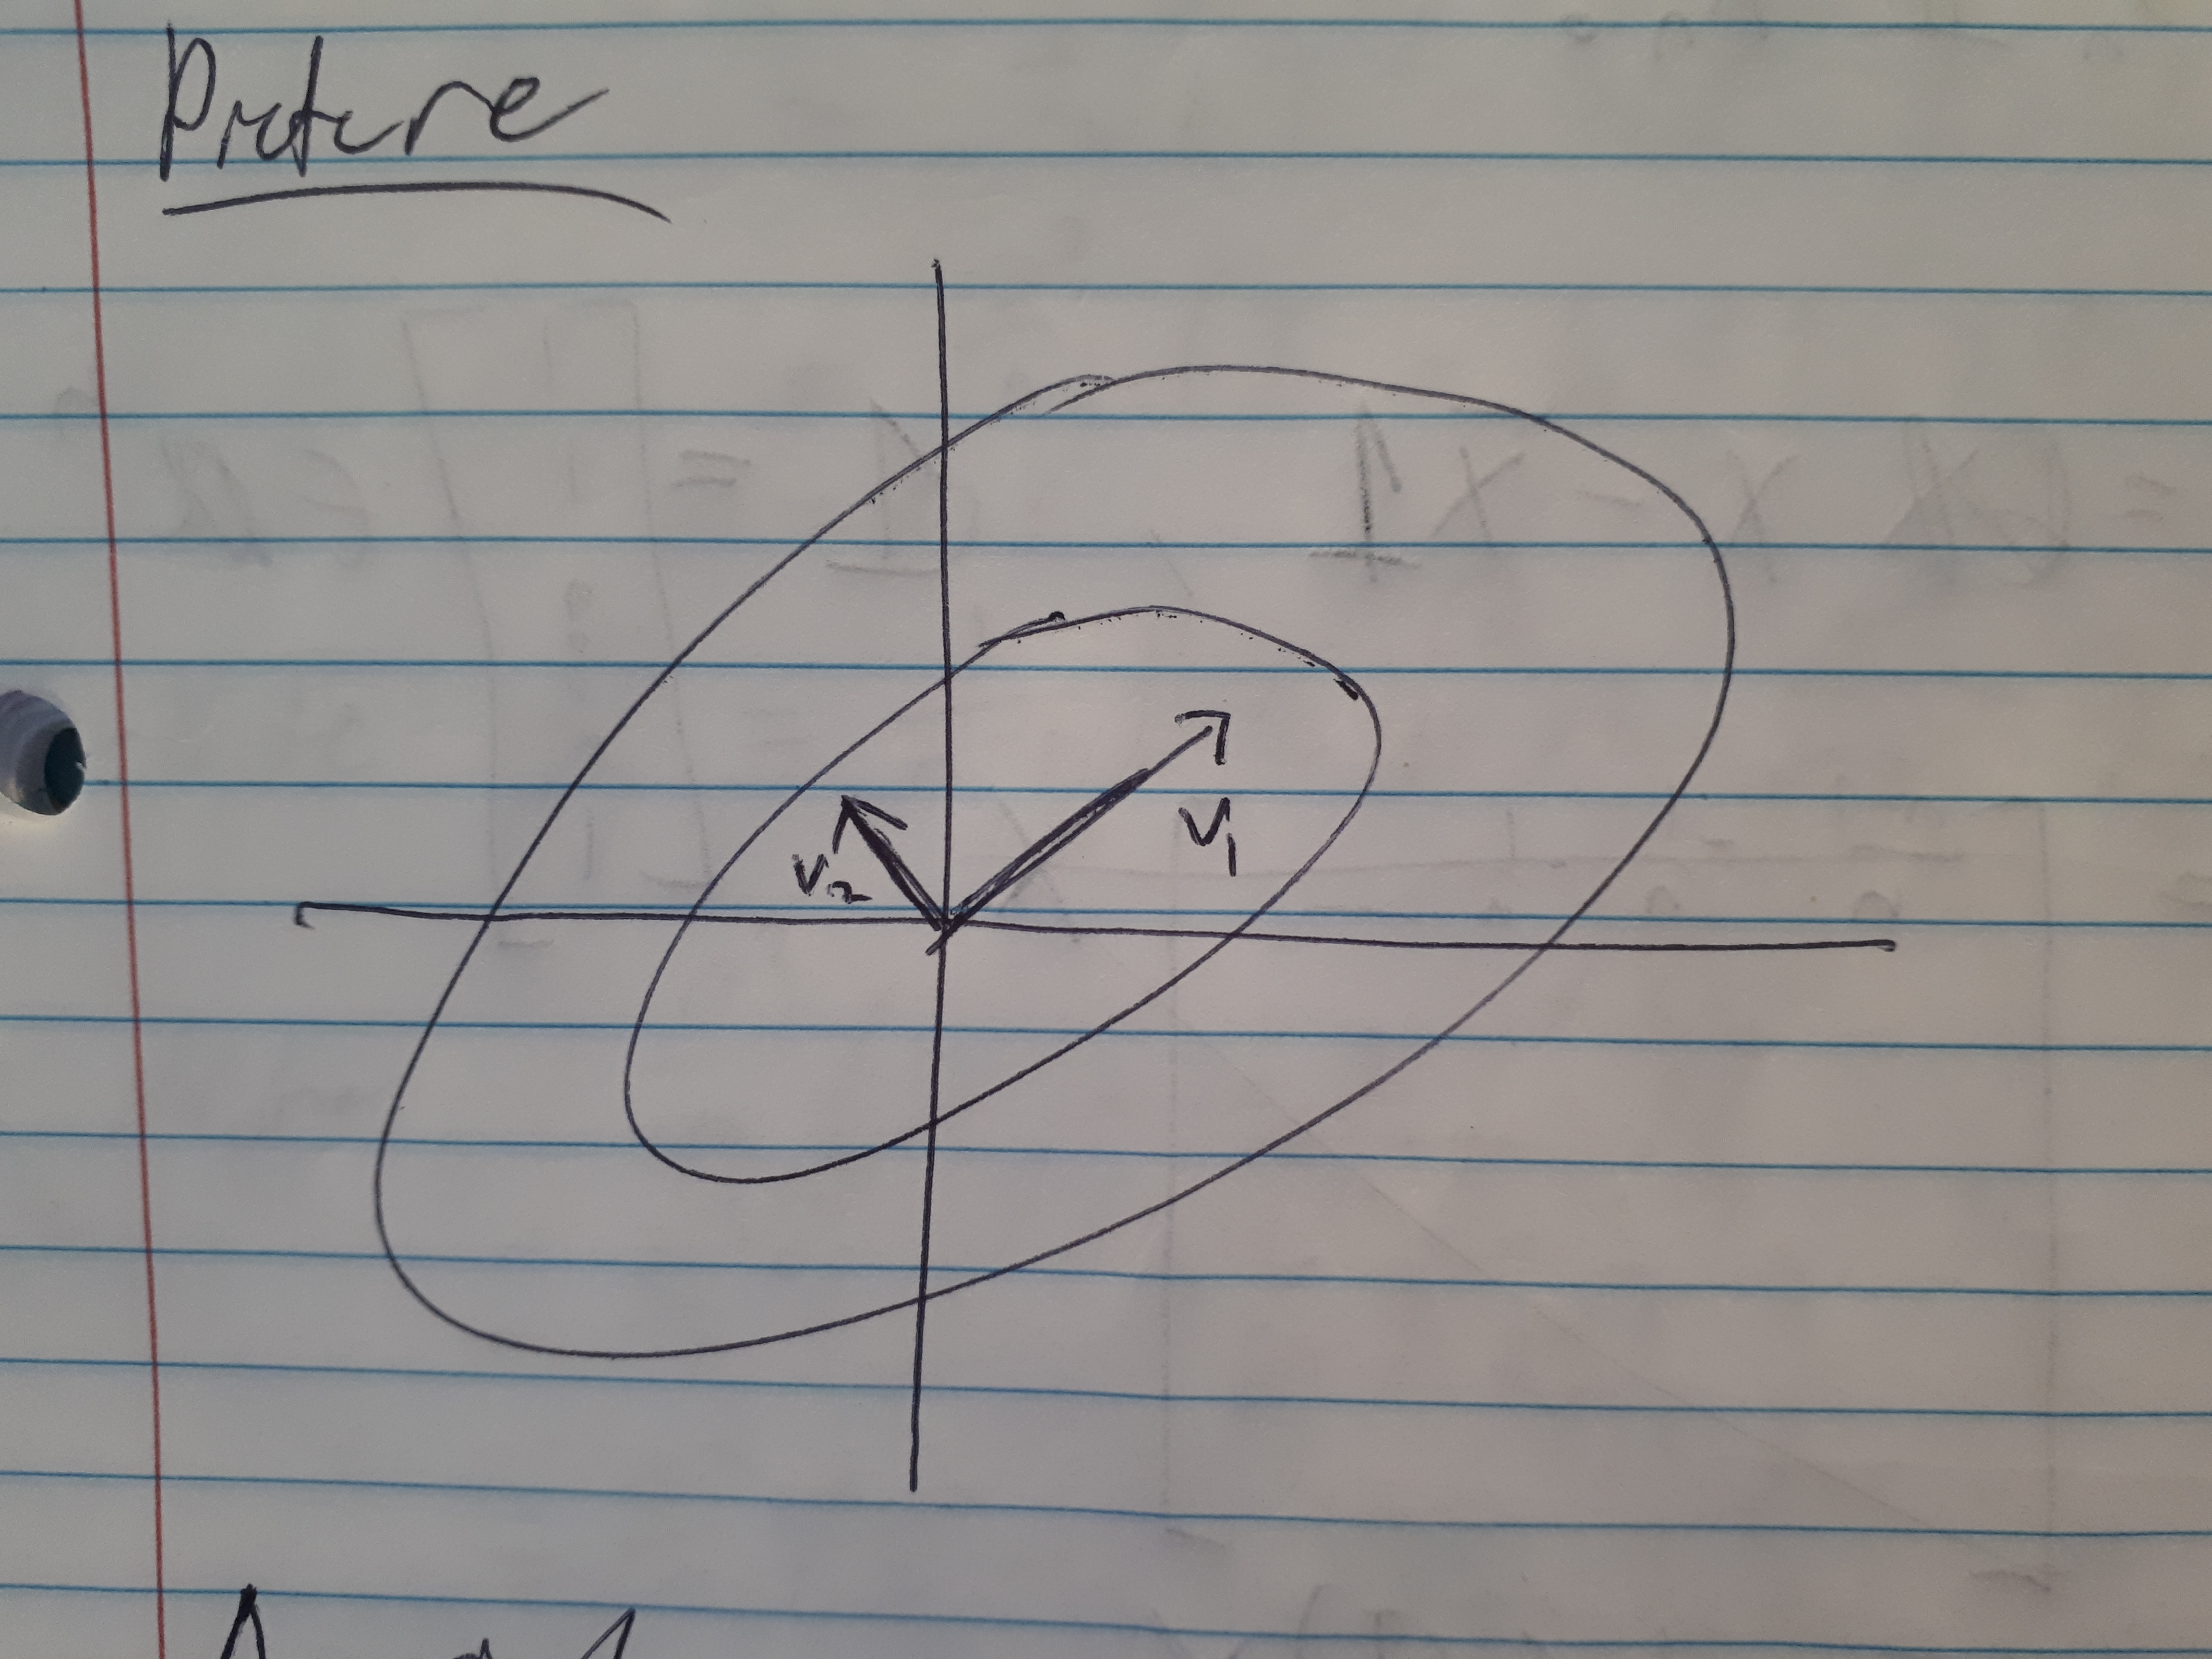 Picture
v₁
v₂